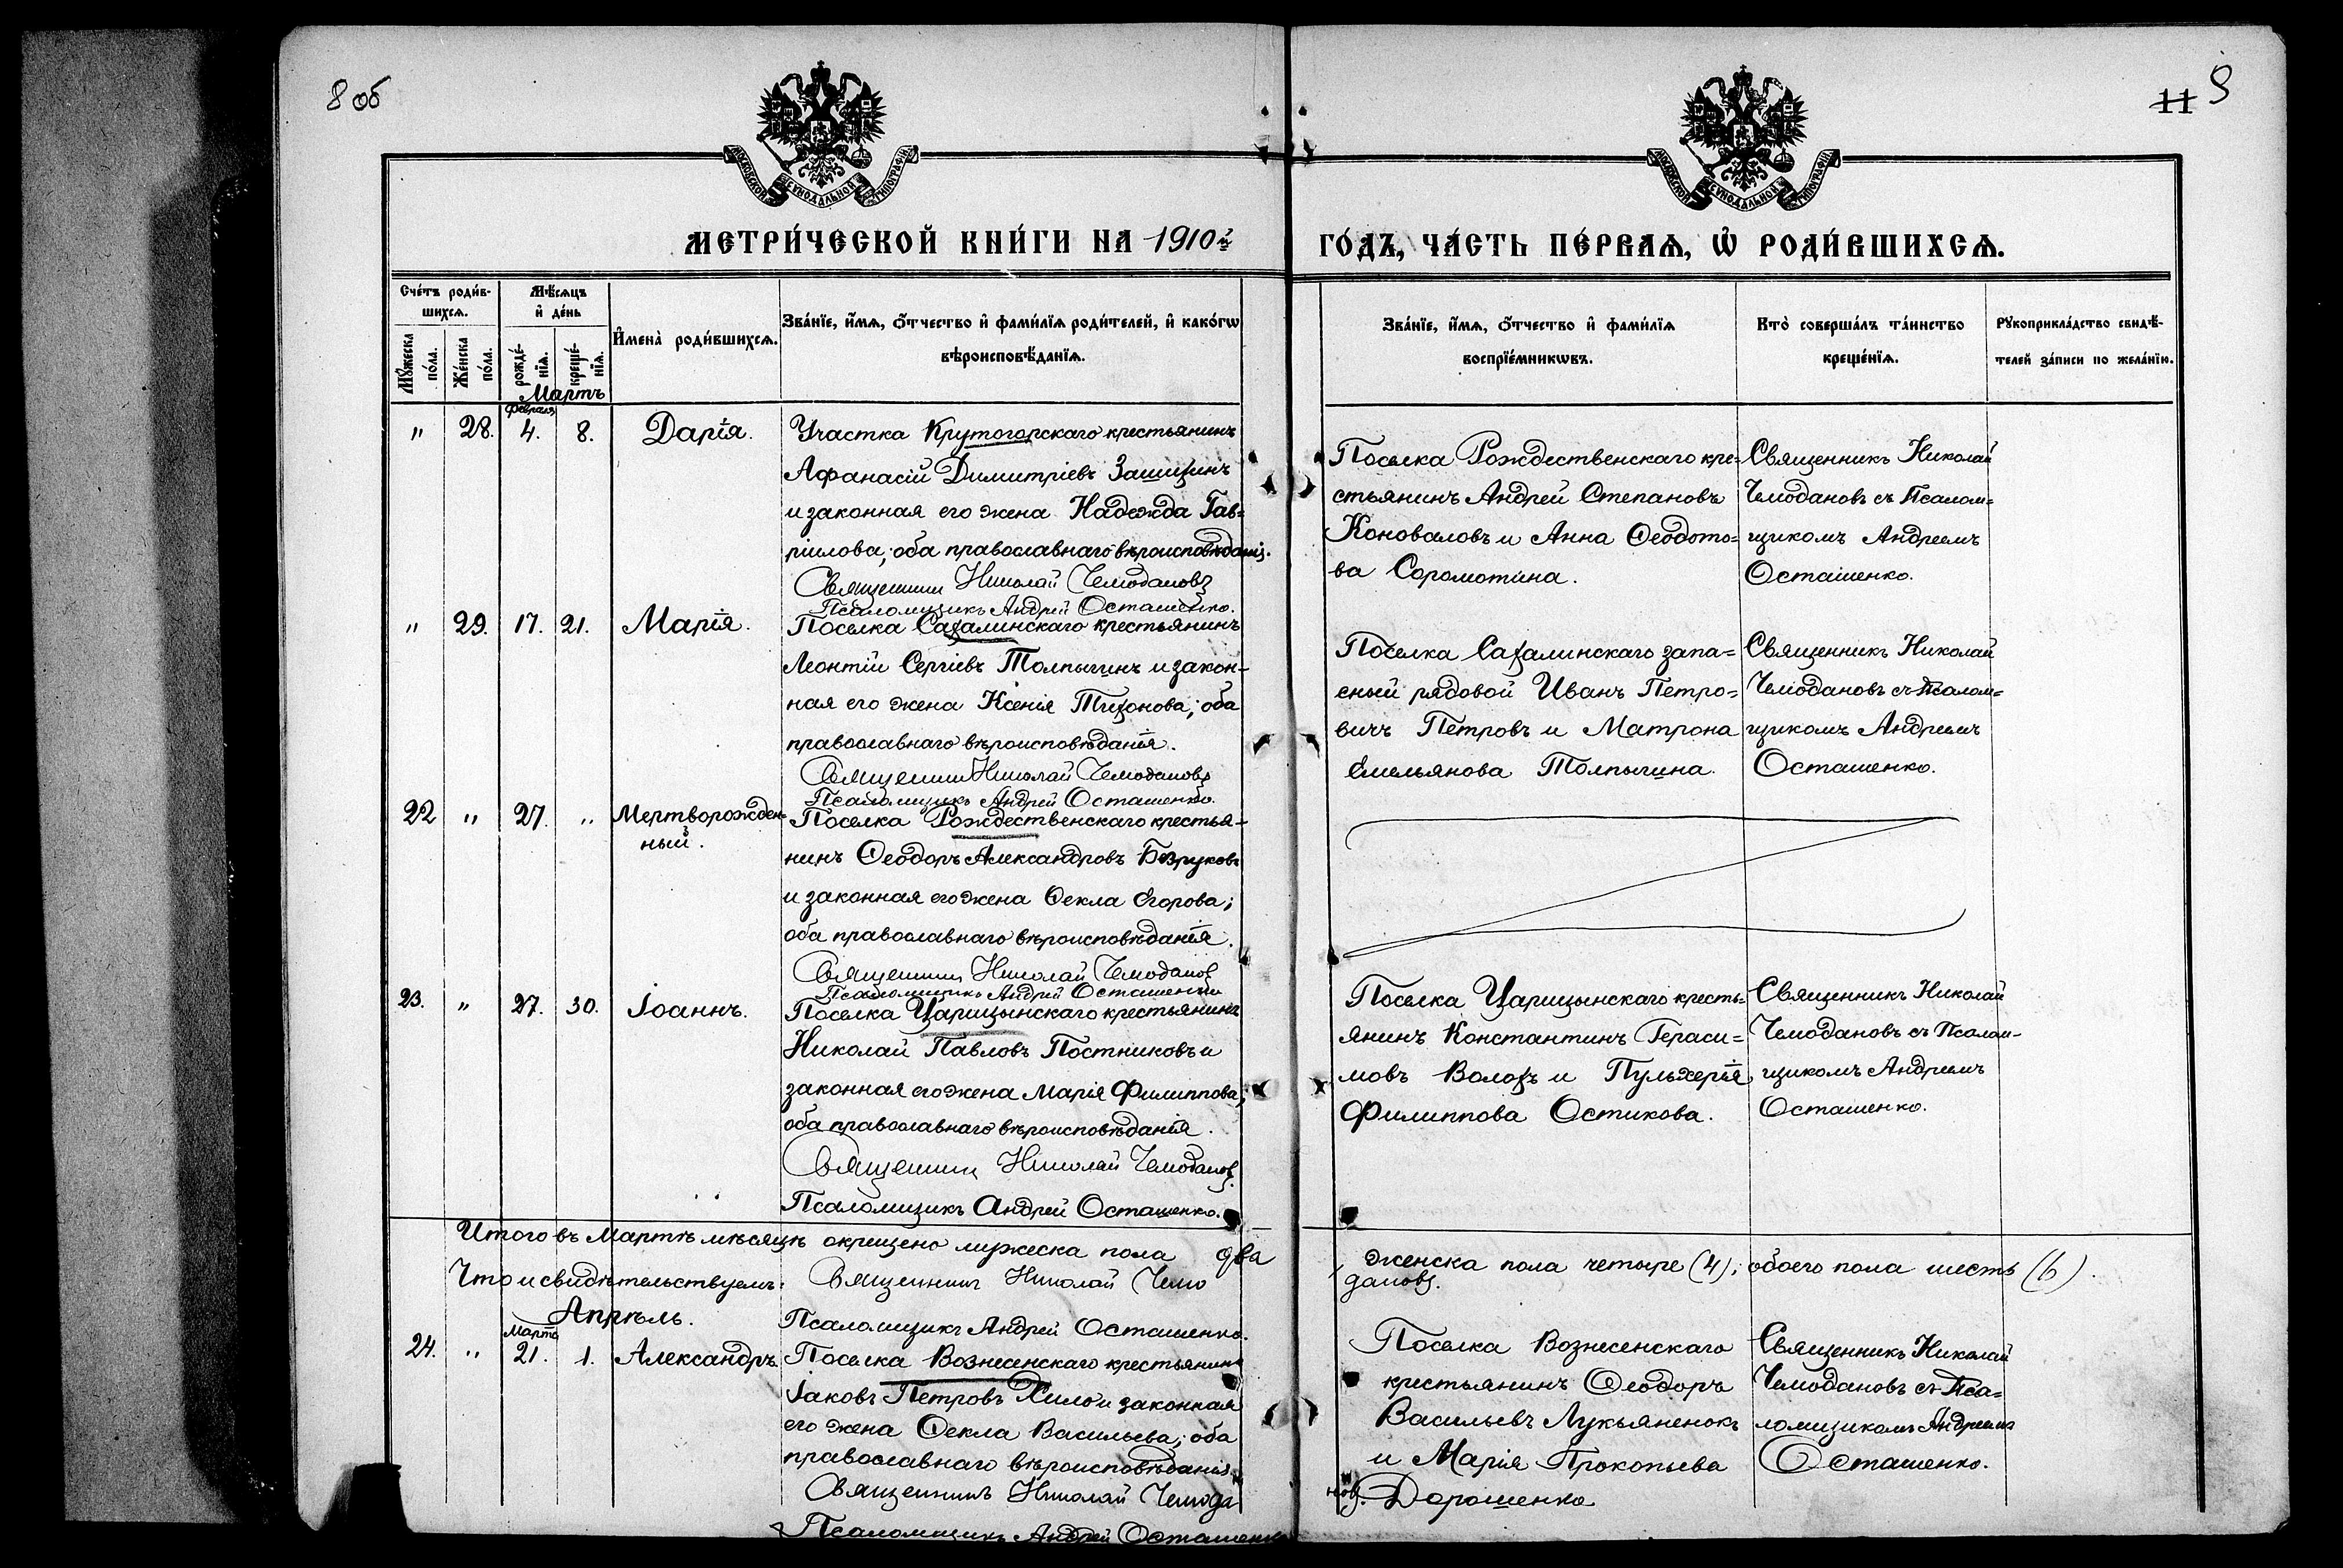 8 об
11 9
МОСКОВСКОЙ СѴНОДАЛЬНОЙ ТИПОГРАФІИ
МОСКОВСКОЙ СѴНОДАЛЬНОЙ ТИПОГРАФІИ
МЕТРИ́ЧЕСКОЙ КНИ́ГИ НА 1910 г.
ГО́ДЪ, ЧА́СТЬ ПЕ́РВАѦ, Ѡ҆ РОДИ́ВШИХСѦ.
Сче́тъ роди́вшихсѧ.
Мꙋ́жеска по́ла.
Же́нска по́ла.
Мѣ́сѧцъ и҆ де́нь
рожде́нїѧ.
креще́нїѧ.
И҆мена̀ роди́вшихсѧ.
Зва́нїе, и҆́мѧ, ѻ҆́тчество и҆ фами́лїѧ роди́телей, и҆ како́гѡ
вѣроисповѣ́данїѧ.
Зва́нїе, и҆́мѧ, ѻ҆́тчество и҆ фами́лїѧ
воспрїе́мникѡвъ.
Кто̀ соверша́лъ та́инство
креще́нїѧ.
Рꙋкоприкла́дство свидѣ́-
телей за́писи по жела́нїю.
Мартъ
Февраля
" 28. 4. 8. Дарія.
Участка Крутогорскаго крестьянинъ
Афанасій Димитріевъ Зашихинъ
и законная его жена Надежда Гав=
ріилова; оба православнаго вѣроисповѣданія.
Священникъ Николай Чемодановъ
Псаломщикъ Андрей Осташенко.
Поселка Рождественскаго кре=
стьянинъ Андрей Степановъ
Коноваловъ и Анна Ѳеодото=
ва Соромотина.
Священникъ Николай
Чемодановъ съ Псалом=
щикомъ Андреемъ
Осташенко.
" 29. 17. 21. Марія.
Поселка Сахалинскаго крестьянинъ
Леонтій Сергіевъ Толпыгинъ и закон-
ная его жена Ксенія Тихонова; оба
православнаго вѣроисповѣданія.
Священникъ Николай Чемодановъ
Псаломщикъ Андрей Осташенко.
Поселка Сахалинскаго запа=
сный рядовой Иванъ Петро=
вичъ Петровъ и Матрона
Емельянова Толпыгина.
Священникъ Николай
Чемодановъ съ Псалом=
щикомъ Андреемъ
Осташенко.
22 " 27. " Мертворожден-
ный.
Поселка Рождественскаго крестья-
нинъ Ѳеодоръ Александровъ Безруковъ
и законная его жена Ѳекла Егорова;
оба православнаго вѣроисповѣданія.
Священникъ Николай Чемодановъ
Псаломщикъ Андрей Осташенко
23. " 27. 30. Іоаннъ.
Поселка Царицынскаго крестьянинъ
Николай Павловъ Постниковъ и
законная его жена Марія Филиппова;
оба православнаго вѣроисповѣданія.
Священникъ Николай Чемодановъ.
Псаломщикъ Андрей Осташенко.
Поселка Царицынскаго кресть=
янинъ Константинъ Гераси=
мовъ Волохъ и Пульхерія
Филиппова Остикова.
Священникъ Николай
Чемодановъ съ Псалом-
щикомъ Андреемъ
Осташенко.
Итого въ Мартѣ мѣсяцѣ окрещено мужеска пола два
женска пола четыре (4); обоего пола шесть (6).
Что и свидѣтельствуемъ: Священникъ Николай Чемо
дановъ.
Псаломщикъ Андрей Осташенко.
Апрѣль.
Марта
24. " 21. 1. Александръ.
Поселка Вознесенскаго крестьянинъ
Іаковъ Петровъ Хило и законная
его жена Ѳекла Васильева; оба
православнаго вѣроисповѣданія.
Священникъ Николай Чемода
новъ.
Псаломщикъ Андрей Осташенко
Поселка Вознесенскаго
крестьянинъ Ѳеодоръ
Васильевъ Лукьяненокъ
и Марія Прокопьева
Дорошенко
Священникъ Николай
Чемодановъ съ Пса=
ломщикомъ Андреемъ
Осташенко.